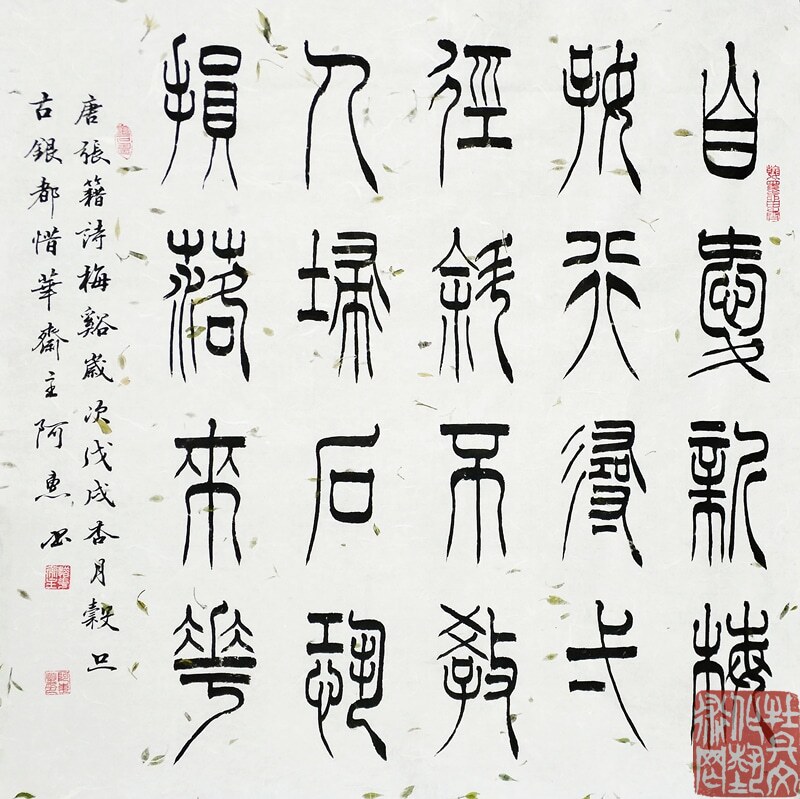 自愛新梅
好行尋弌
徑斜不教
人埽石恐
損落來花
唐張籍詩梅谿歲次戊戌杏月穀旦
古銀都惜華齋主阿惠書